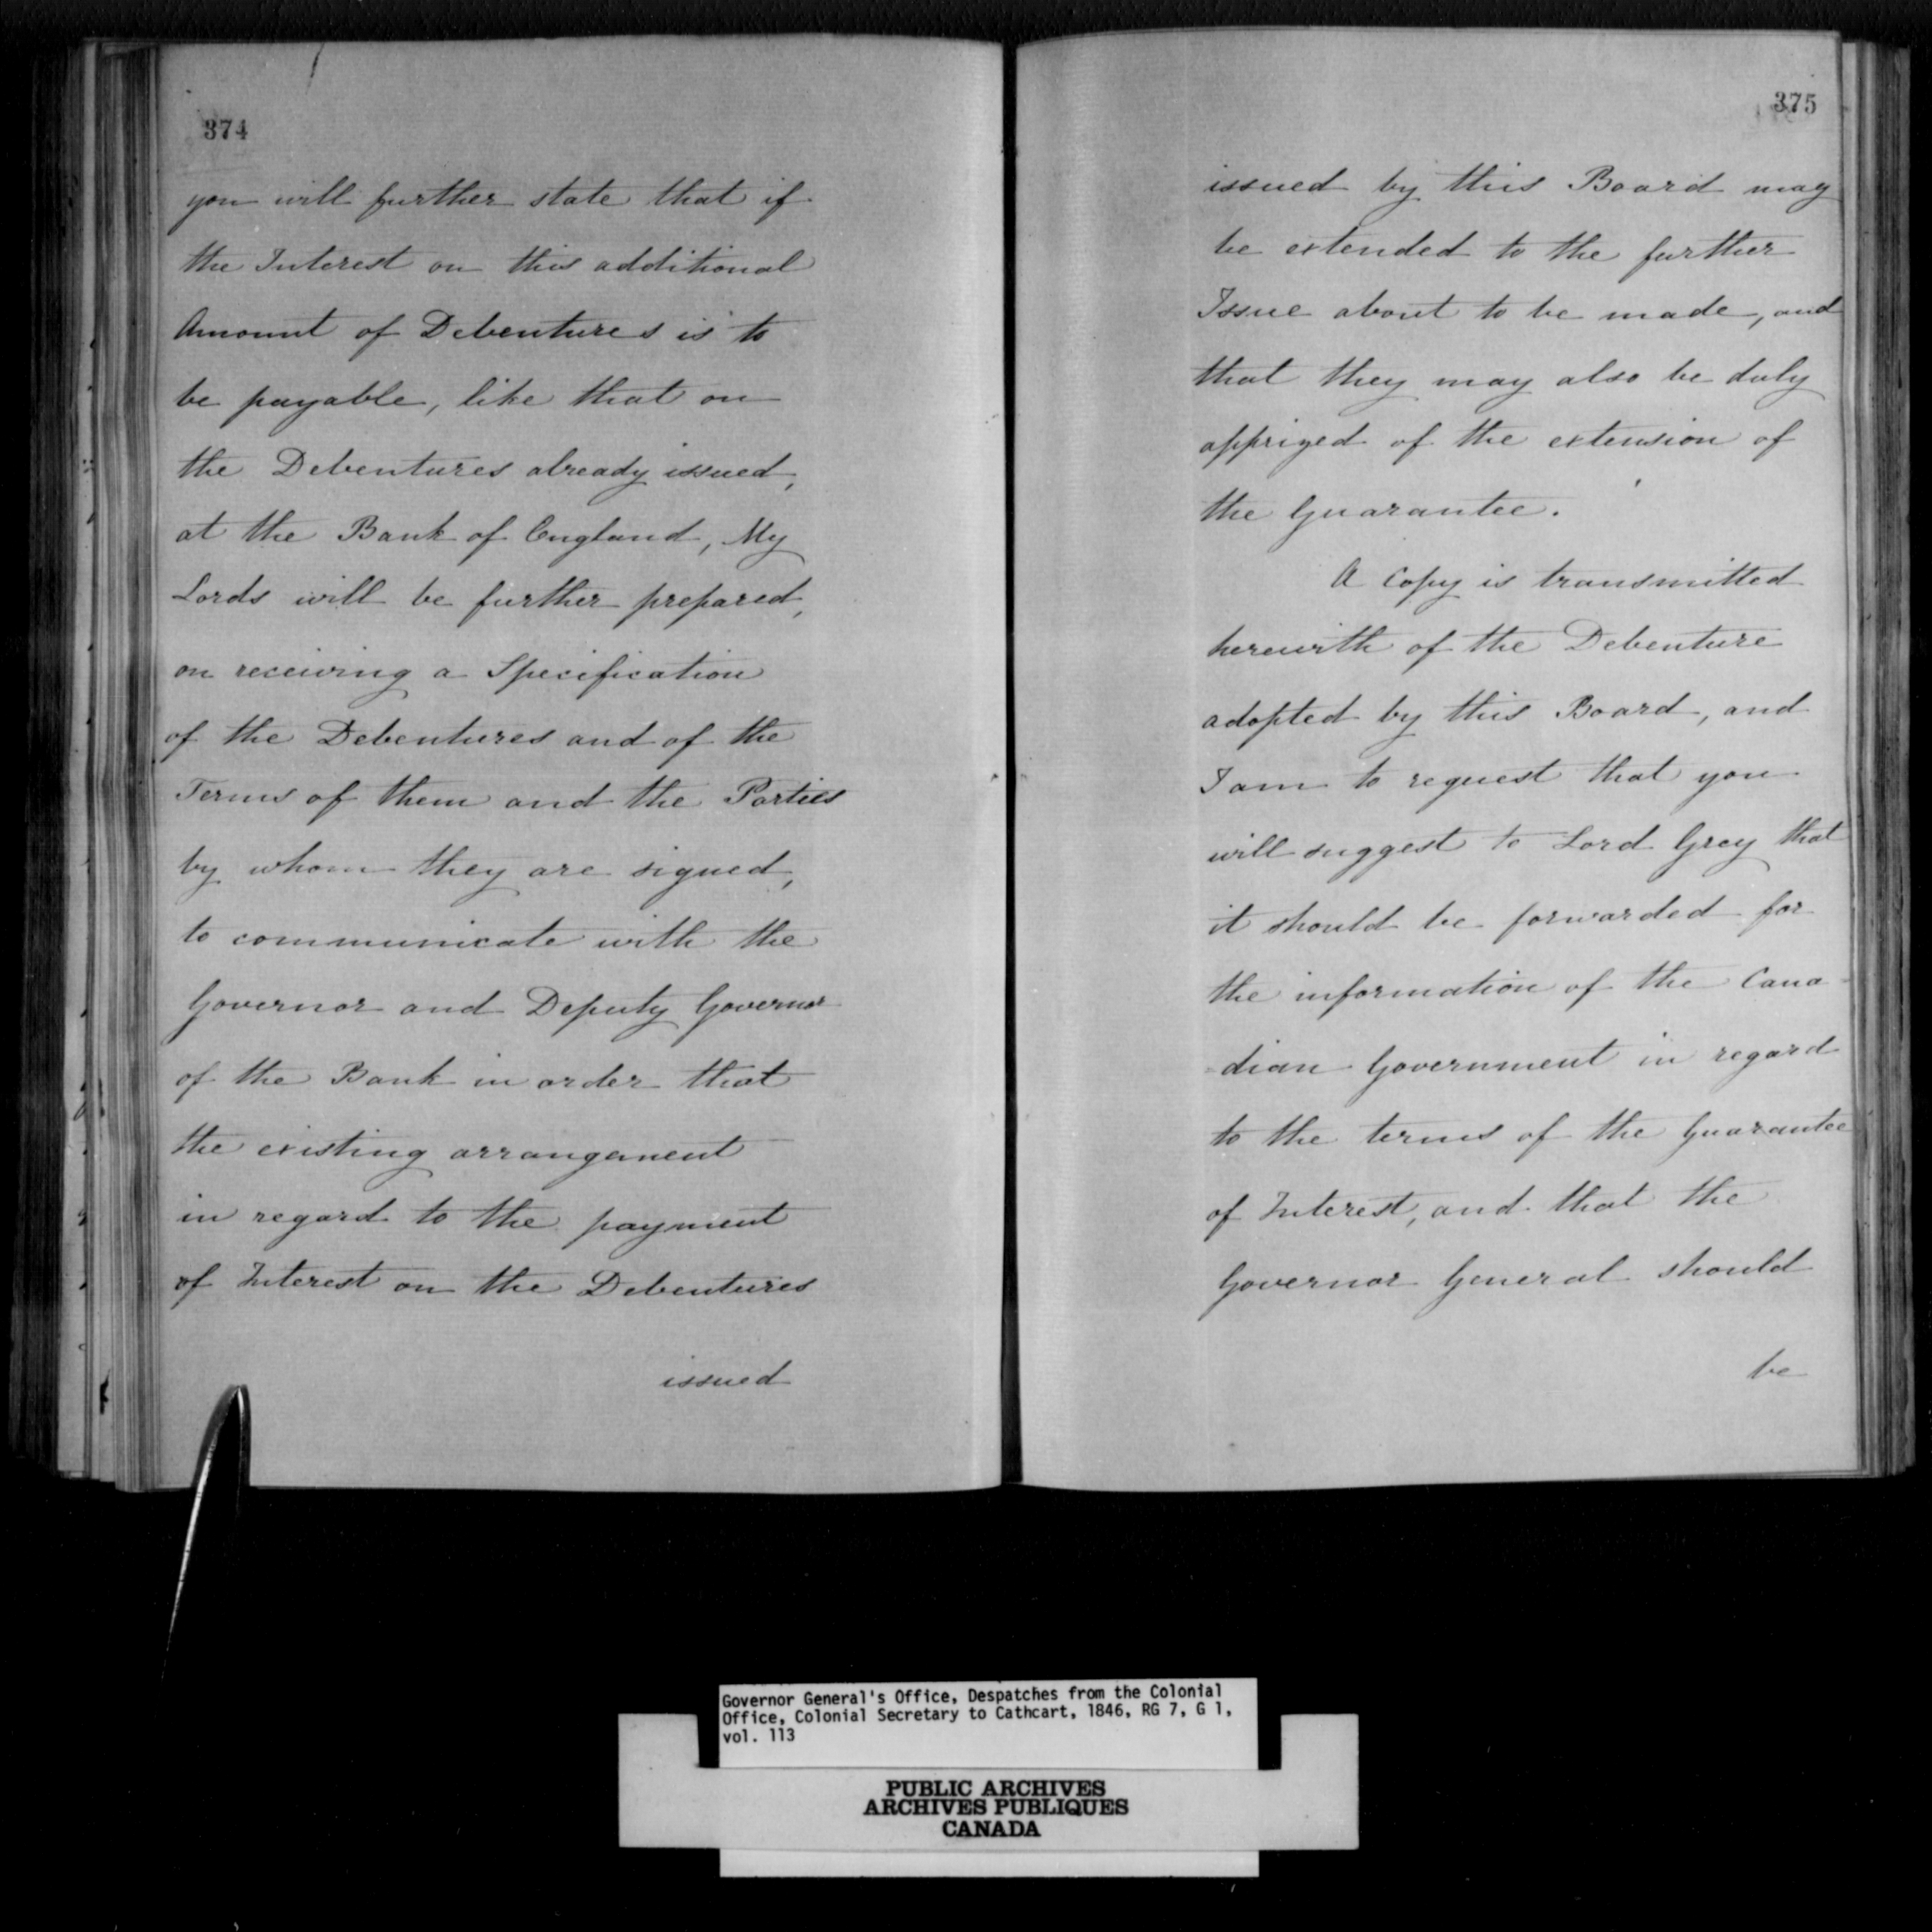 374
you will further state that if
the Interest on this additional
Amount of Debentures is to
be payable, like that on
the Debentures already issued,
at the Bank of England, My
Lords will be further prepared,
on receiving a Specification
of the Debentures and of the
Terms of them and the Parties
by whom they are signed,
to communicate with the
Governor and Deputy Governor
of the Bank in order that
the existing arrangement
in regard to the payment
of Interest on the Debentures
issued
375
issued by this Board may
be extended to the further
Issue about to be made, and
that they may also be duly
apprized of the extension of
the Guarantee.
A Copy is transmitted
herewith of the Debenture
adopted by this Board, and
I am to request that you
will suggest to Lord Grey that
it should be forwarded for
the information of the Cana-
-dian Government in regard
to the terms of the Guarantee
of Interest, and that the
Governor General should
be
Governor General's Office, Despatches from the Colonial
Office, Colonial Secretary to Cathcart, 1846, RG 7, G 1,
vol. 113
PUBLIC ARCHIVES
ARCHIVES PUBLIQUES
CANADA